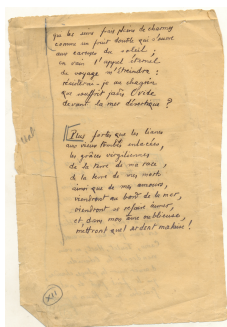 que les seins frais pleins de charmes
comme un fruit double qui s'ouvre
aux caresses du soleil ;
en vain l'appel éternel
du voyage m'étreindra :
écouterai-je au chagrin
que souffrit jadis Ovide
devant la mer désertique ?
Plus fortes que les lianes
aux vieux troubles enlacées,
les grâces vergiliennes
de la terre de ma race,
de la terre de mes morts
ainsi que de mes amours,
viendront au bord de la mer,
viendront se refaire aimer,
et, dans mon âme oublieuse,
mettront quel ardent malaise !
XII